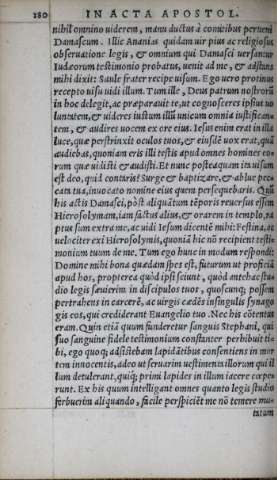 180 IN ACTA APOSTOL.
nihil omnino uiderem, manu ductus à comitibus perueni
Damascum. Illic Ananias quidam uir pius ac religiosus
obseruatione legis, & omnium qui Damasci uersantur
Iudæorum testimonio probatus, uenit ad me, & adstans
mihi dixit: Saule frater recipe uisum. Ego uero protinus
recepto uisu uidi illum. Tum ille, Deus patrum nostrorũ
in hoc delegit, ac præparauit te, ut cognosceres ipsius uo
luntatem, & uideres iustum illũ unicum omnia iustifican-
tem, & audires uocem ex ore eius. Iesus enim erat in illa
luce, quæ perstrinxit oculos tuos, & eiusdẽ uox erat, quã
audiebas, quoniam eris illi testis apud omnes homines eo
rum quæ uidisti & audisti. Et nunc posteaquam ita uisum
est deo, quid cõtaris? Surge & baptizare, & ablue pec-
cata tua, inuocato nomine eius quem persequebaris. Quũ
his actis Damasci, põst aliquãtum tẽporis reuersus essem
Hierosolymam, iam factus alius, & orarem in templo, ra
ptus sum extra me, ac uidi Iesum dicentẽ mihi: Festina, &
uelociter exi Hierosolymis, quoniã hic nõ recipient testi-
monium tuum de me. Tum ego hunc in modum respondi:
Domine mihi bona quædam spes est, futurum ut proficiã
apud hos, propterea quòd ipsi sciunt, quòd antehac stu-
dio legis sæuierim in discipulos tuos, quoscunq; possem
pertrahens in carcerẽ, ac uirgis cædẽs in singulis synago
gis eos, qui crediderant Euangelio tuo. Nec his cõtentus
eram. Quin etiã quum funderetur sanguis Stephani, qui
suo sanguine fidele testimonium constanter perhibuit ti-
bi, ego quoq; adstabam lapidãtibus consentiens in mor
tem innocentis, adeo ut seruarim uestimenta illorum qui il
lum detulerant, quiq; primi lapides in illum iacere cœpe-
runt. Ex his quum intelligant omnes quanto legis studio
ferbuerim aliquando, facile perspiciẽt me nõ temere mu-
tatum